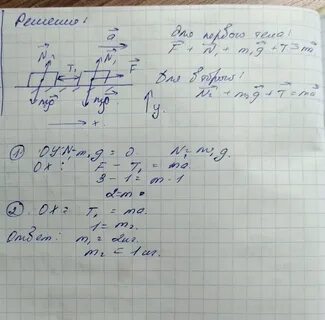 Решение:
Для первого тела:
F + N₁ + m₁g + T = m
Для второго:
N₂ + m₂g + T = ma
a
N₂ T₁ N₁ F
mg mg
y
x
① OY: N - m₁g = 0 N₁ = m₁g.
OX: F - T₁ = ma.
3 - 1 = m · 1
2 = m
② OX: T₁ = ma.
1 = m₂.
Ответ: m₁ = 2кг.
m₂ = 1кг.